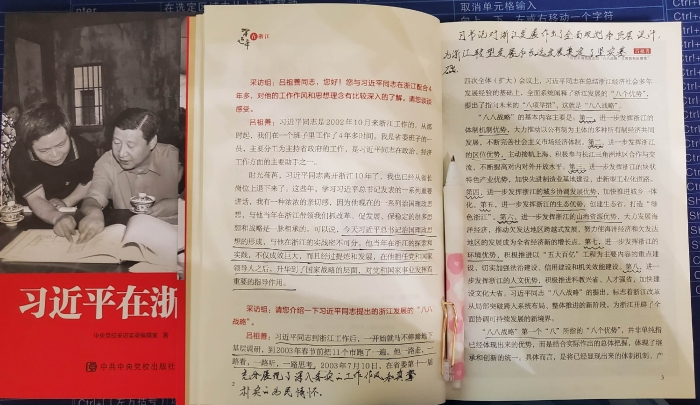 在选定区
取消单元格输入
向上、下、左或右移动一个字符
习近平在浙
中央党校采访实录编辑室 著
中共中央党校出版社
习近平
在浙江
采访组:吕祖善同志,您好!您与习近平同志在浙江配合4
年多,对他的工作作风和思想理念有比较深入的了解。请您谈谈
感受。
吕祖善:习近平同志是2002年10月来浙江工作的,从那
时起,我们在一个班子里工作了4年多时间。我是省委班子的一
员,主要分工为主持省政府的工作,是习近平同志在政治、经济
工作方面的主要助手之一。
时光荏苒,习近平同志离开浙江10年了,我也已经从省长
岗位上退下来了。这些年,学习习近平总书记发表的一系列重要
讲话,我有一种浓浓的亲切感,因为他现在的一系列治国理政思
想,与他当年在浙江带领我们抓改革、促发展、保稳定的很多思想
和战略是一脉相承的。可以说,今天习近平总书记治国理政思
想的形成,与他在浙江的实践密不可分。他当年在浙江的探索和
实践,不仅成效巨大,而且经过提炼和发展,在他担任党和国家
领导人之后,升华到了国家战略的层面,对党和国家事业发挥着
重要的指导作用。
采访组:请您介绍一下习近平同志提出的浙江发展的“八八
战略”。
吕祖善:习近平同志到浙江工作后,一开始就马不停蹄地下
基层调研,到2003年春节前把11个市跑了一遍。他一路走、一
路看、一路听、一路思考。2003年7月10日,在省委第十一届
2
充分展现了深入务实的工作作风和真挚
朴实的为民情怀。
习书记对浙江发展作出了全面规划和顶层设计,
为浙江转型发展和长远发展奠定了坚实基
础。
四次全体(扩大)会议上,习近平同志在总结浙江经济社会多年
发展经验的基础上,全面系统阐释了浙江发展的“八个优势”,
提出了指向未来的“八项举措”,这就是“八八战略”。
“八八战略”的基本内容主要是:第一,进一步发挥浙江的
体制机制优势,大力推动以公有制为主体的多种所有制经济共同
发展,不断完善社会主义市场经济体制。第二,进一步发挥浙江
的区位优势,主动接轨上海、积极参与长江三角洲地区合作与交
流,不断提高对内对外开放水平。第三,进一步发挥浙江的块状
特色产业优势,加快先进制造业基地建设,走新型工业化道路。
第四,进一步发挥浙江的城乡协调发展优势,加快推进城乡一体
化。第五,进一步发挥浙江的生态优势,创建生态省,打造“绿
色浙江”。第六,进一步发挥浙江的山海资源优势,大力发展海
洋经济,推动欠发达地区跨越式发展,努力使海洋经济和欠发达
地区的发展成为全省经济新的增长点。第七,进一步发挥浙江的
环境优势,积极推进以“五大百亿”工程为主要内容的重点建
设,切实加强法治建设、信用建设和机关效能建设。第八,进一
步发挥浙江的人文优势,积极推进科教兴省、人才强省,加快建
设文化大省。习近平同志“八八战略”的提出,标志着浙江改革
从局部突破跨入系统布局、整体推进的新阶段,为浙江开辟了全面
协调可持续发展的新境界。
“八八战略”第一个“八”所指的“八个优势”,并非单纯指
已经体现出来的优势,而是结合实际作出的总体把握,体现了继
承和创新的统一。具体而言,是将已经显现出来的体制机制、产
3